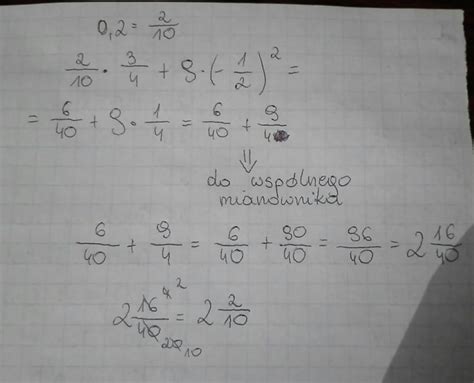 0,2 = 2/10
2/10 · 3/4 + 9 · (- 1/2)² =
= 6/40 + 9 · 1/4 = 6/40 + 9/4
⇓
do wspólnego
mianownika
6/40 + 9/4 = 6/40 + 90/40 = 96/40 = 2 16/40
2 16/40 = 2 2/10
4 2
20 10